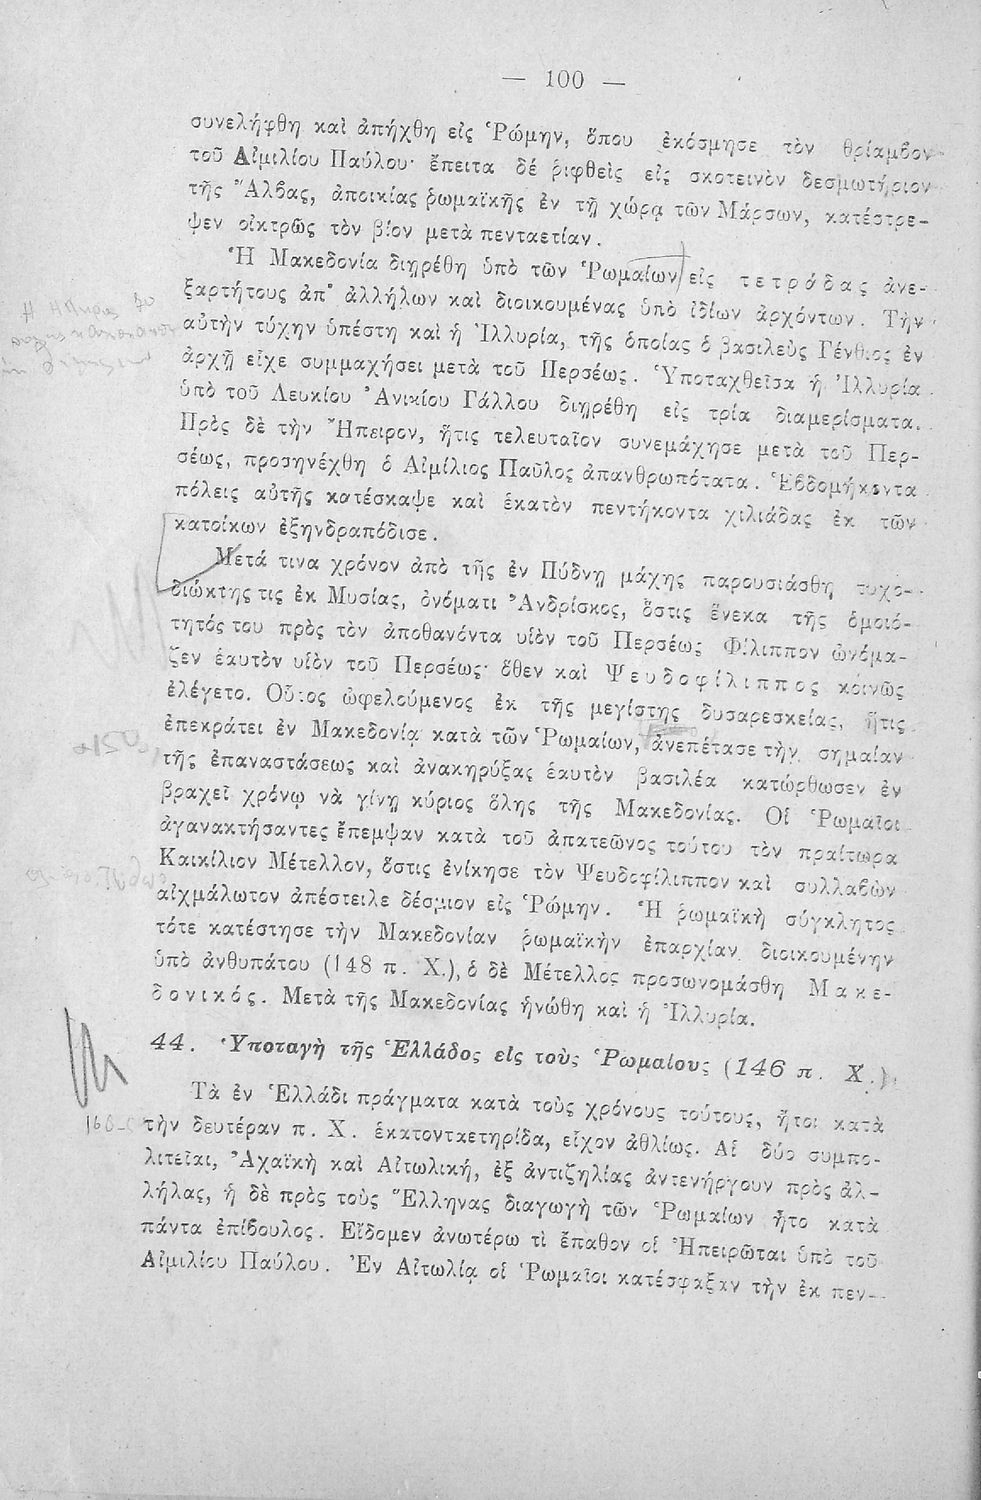 — 100 —
συνελήφθη καὶ ἀπήχθη εἰς Ῥώμην, ὅπου ἐκόσμησε τὸν θρίαμβον
τοῦ Αἰμιλίου Παύλου· ἔπειτα δέ ῥιφθεὶς εἰς σκοτεινὸν δεσμωτήριον
τῆς Ἄλβας, ἀποικίας ῥωμαϊκῆς ἐν τῇ χώρᾳ τῶν Μάρσων, κατέστρε-
ψεν οἰκτρῶς τὸν βίον μετὰ πενταετίαν.
Ἡ Μακεδονία διῃρέθη ὑπὸ τῶν Ῥωμαίων εἰς τετράδας ἀνε-
ξαρτήτους ἀπ' ἀλλήλων καὶ διοικουμένας ὑπὸ ἰδίων ἀρχόντων. Τὴν
αὐτὴν τύχην ὑπέστη καὶ ἡ Ἰλλυρία, τῆς ὁποίας ὁ βασιλεὺς Γένθιος ἐν
ἀρχῇ εἶχε συμμαχήσει μετὰ τοῦ Περσέως. Ὑποταχθεῖσα ἡ Ἰλλυρία
ὑπὸ τοῦ Λευκίου Ἀνικίου Γάλλου διῃρέθη εἰς τρία διαμερίσματα.
Πρὸς δὲ τὴν Ἤπειρον, ἥτις τελευταῖον συνεμάχησε μετὰ τοῦ Περ-
σέως, προσηνέχθη ὁ Αἰμίλιος Παῦλος ἀπανθρωπότατα. Ἑβδομήκοντα
πόλεις αὐτῆς κατέσκαψε καὶ ἑκατὸν πεντήκοντα χιλιάδας ἐκ τῶν
κατοίκων ἐξηνδραπόδισε.
Μετά τινα χρόνον ἀπὸ τῆς ἐν Πύδνῃ μάχης παρουσιάσθη τυχο-
διώκτης τις ἐκ Μυσίας, ὀνόματι Ἀνδρίσκος, ὅστις ἕνεκα τῆς ὁμοιό-
τητός του πρὸς τὸν ἀποθανόντα υἱὸν τοῦ Περσέως Φίλιππον ὠνόμα-
ζεν ἑαυτὸν υἱὸν τοῦ Περσέως· ὅθεν καὶ Ψευδοφίλιππος κοινῶς
ἐλέγετο. Οὗτος ὠφελούμενος ἐκ τῆς μεγίστης δυσαρεσκείας, ἥτις
ἐπεκράτει ἐν Μακεδονίᾳ κατὰ τῶν Ῥωμαίων, ἀνεπέτασε τὴν σημαίαν
τῆς ἐπαναστάσεως καὶ ἀνακηρύξας ἑαυτὸν βασιλέα κατώρθωσεν ἐν
βραχεῖ χρόνῳ νὰ γίνῃ κύριος ὅλης τῆς Μακεδονίας. Οἱ Ῥωμαῖοι
ἀγανακτήσαντες ἔπεμψαν κατὰ τοῦ ἀπατεῶνος τούτου τὸν πραίτωρα
Καικίλιον Μέτελλον, ὅστις ἐνίκησε τὸν Ψευδοφίλιππον καὶ συλλαβὼν
αἰχμάλωτον ἀπέστειλε δέσμιον εἰς Ῥώμην. Ἡ ῥωμαϊκὴ σύγκλητος
τότε κατέστησε τὴν Μακεδονίαν ῥωμαϊκὴν ἐπαρχίαν διοικουμένην
ὑπὸ ἀνθυπάτου (148 π. Χ.), ὁ δὲ Μέτελλος προσωνομάσθη Μακε-
δονικός. Μετὰ τῆς Μακεδονίας ἡνώθη καὶ ἡ Ἰλλυρία.
44. Ὑποταγὴ τῆς Ἑλλάδος εἰς τοὺς Ῥωμαίους (146 π. Χ.)
Τὰ ἐν Ἑλλάδι πράγματα κατὰ τοὺς χρόνους τούτους, ἤτοι κατὰ
τὴν δευτέραν π. Χ. ἑκατονταετηρίδα, εἶχον ἀθλίως. Αἱ δύο συμπο-
λιτεῖαι, Ἀχαϊκὴ καὶ Αἰτωλική, ἐξ ἀντιζηλίας ἀντενήργουν πρὸς ἀλ-
λήλας, ἡ δὲ πρὸς τοὺς Ἕλληνας διαγωγὴ τῶν Ῥωμαίων ἦτο κατὰ
πάντα ἐπίβουλος. Εἴδομεν ἀνωτέρω τὶ ἔπαθον οἱ Ἠπειρῶται ὑπὸ τοῦ
Αἰμιλίου Παύλου. Ἐν Αἰτωλίᾳ οἱ Ῥωμαῖοι κατέσφαξαν τὴν ἐκ πεν-